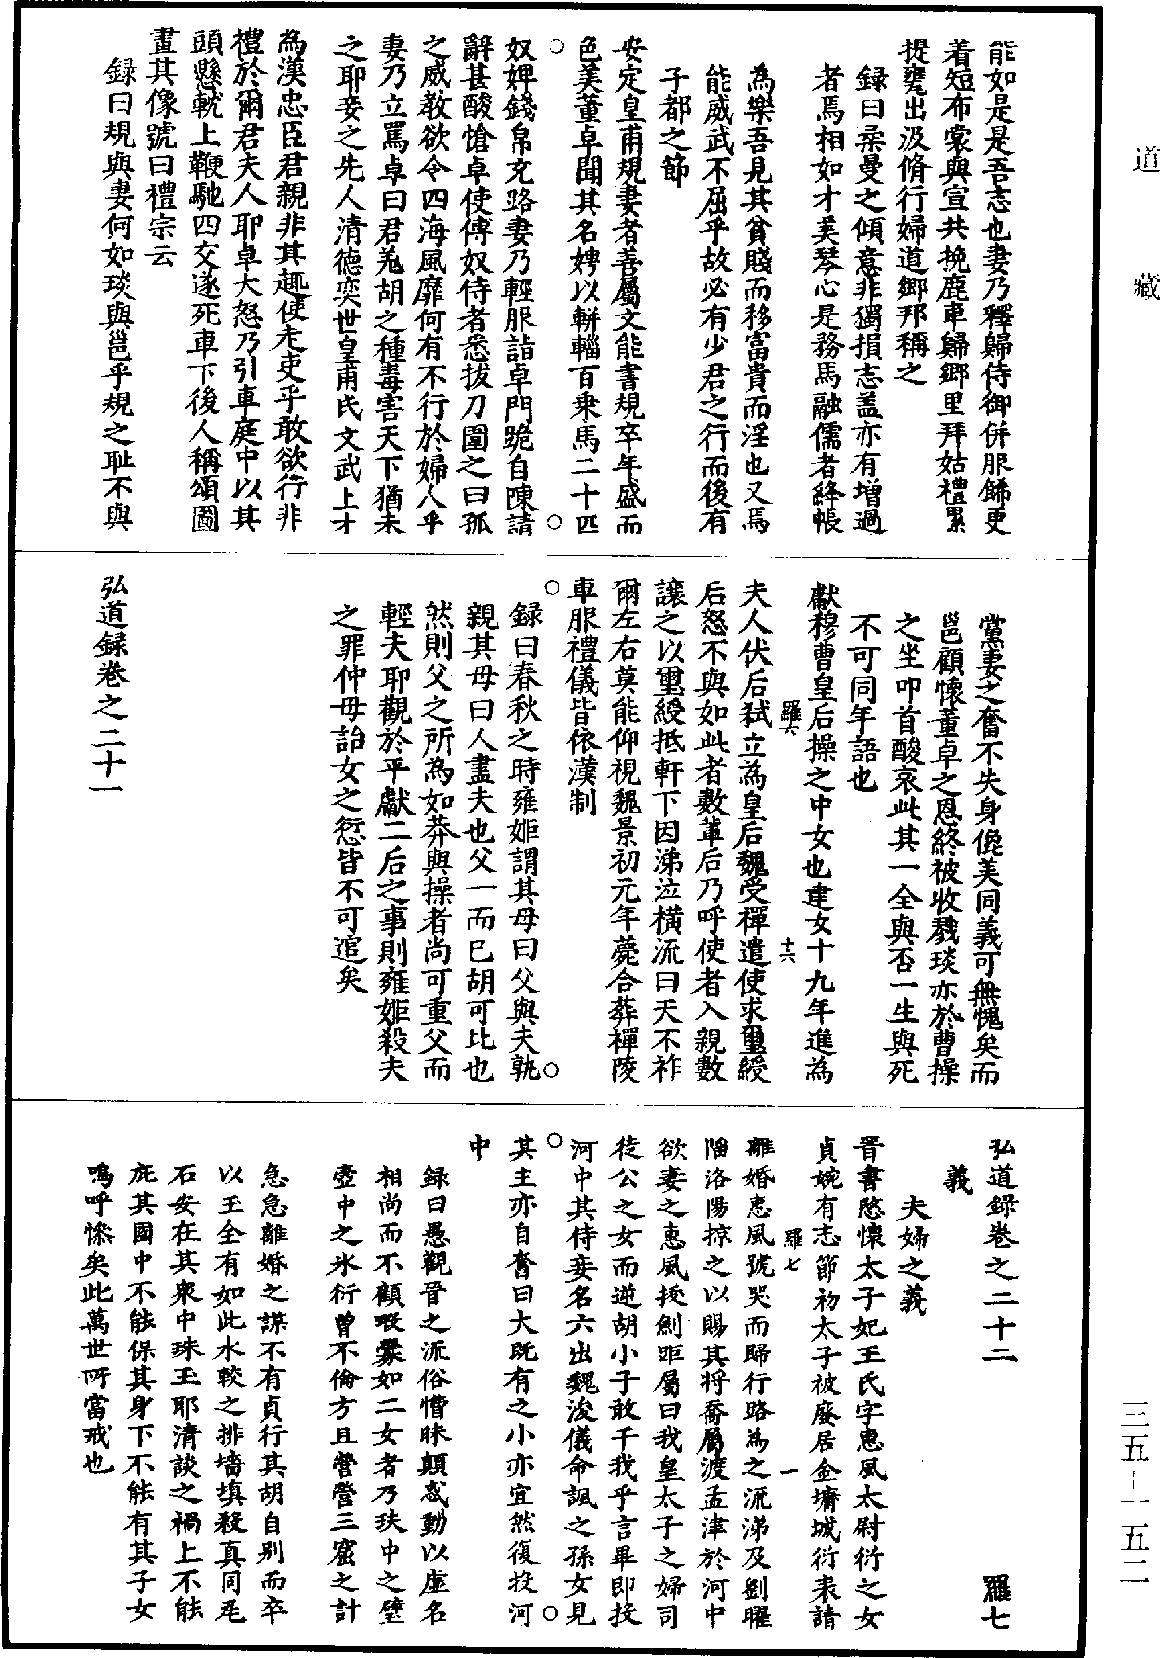 道藏
能如是是吾志也妻乃釋歸侍御併服飾更
着短布裳與宣共挽鹿車歸鄉里拜姑禮畢
提甕出汲脩行婦道鄉邦稱之
録曰柔曼之傾意非獨損志盖亦有增過
者焉相如才美琴心是務馬融儒者絳帳
為樂吾見其貧賤而移富貴而淫也又焉
能威武不屈乎故必有少君之行而後有
子都之節
安定皇甫規妻者善屬文能書規卒年盛而
色美董卓聞其名娉以軿輜百乘馬二十匹
奴婢錢帛充路妻乃輕服詣卓門跪自陳請
辭甚酸愴卓使傅奴侍者悉拔刀圍之曰孤
之威教欲令四海風靡何有不行於婦人乎
妻乃立罵卓曰君羌胡之種毒害天下猶未
之耶妾之先人清德奕世皇甫氏文武上才
為漢忠臣君親非其趣使走吏乎敢欲行非
禮於爾君夫人耶卓大怒乃引車庭中以其
頭懸軏上鞭馳四交遂死車下後人稱頌圖
畫其像號曰禮宗云
録曰規與妻何如琰與邕乎規之耻不與
黨妻之奮不失身儷美同義可無愧矣而
邕顧懷董卓之恩終被收戮琰亦於曹操
之坐叩首酸哀此其一全與否一生與死
不可同年語也
獻穆曹皇后操之中女也建女十九年進為
羅六
十六
夫人伏后弑立為皇后魏受禪遣使求璽綬
后怒不與如此者數輩后乃呼使者入親數
讓之以璽綬抵軒下因涕泣橫流曰天不祚
爾左右莫能仰視魏景初元年薨合葬禪陵
車服禮儀皆依漢制
録曰春秋之時雍姬謂其母曰父與夫孰
親其母曰人盡夫也父一而已胡可比也
然則父之所為如莽與操者尚可重父而
輕夫耶觀於平獻二后之事則雍姬殺夫
之罪仲毋詒女之愆皆不可逭矣
弘道録卷之二十一
弘道録卷之二十二
羅七
義
夫婦之義
晉書愍懷太子妃王氏字惠風太尉衍之女
貞婉有志節初太子被廢居金墉城衍表請
羅七
一
離婚惠風號哭而歸行路為之流涕及劉曜
陷洛陽掠之以賜其將喬屬渡孟津於河中
欲妻之惠風拔劍距屬曰我皇太子之婦司
徒公之女而逆胡小子敢干我乎言畢即投
河中其侍妾名六出魏浚儀命諷之孫女見
其主亦自奮曰大既有之小亦宜然復投河
中
録曰愚觀晉之流俗懵昧顛惑動以虛名
相尚而不顧 如二女者乃玞中之璧
壺中之氷衍曾不倫方且營營三窟之計
急急離婚之謀不有貞行其胡自別而卒
以玉全有如此水較之排墻填殺真同毛
石安在其衆中珠玉耶清談之禍上不能
庇其國中不能保其身下不能有其子女
嗚呼慘矣此萬世所當戒也
三五-一五二